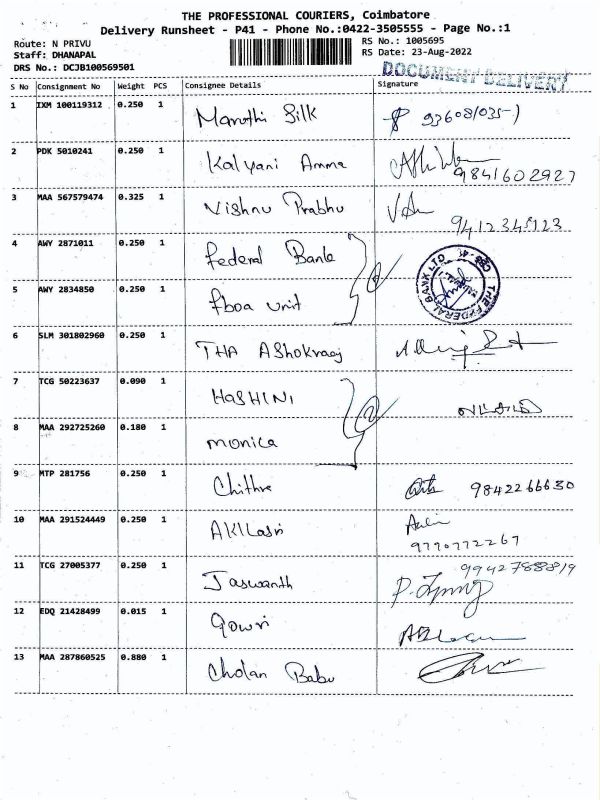 THE PROFESSIONAL COURIERS, Coimbatore
Delivery Runsheet - P41 - Phone No.:0422-3505555 - Page No.:1
Route: N PRIVU
Staff: DHANAPAL
DRS No.: DCJB100569501
RS No.: 1005695
RS Date: 23-Aug-2022
DOCUMENT DELIVERY
S No Consignment No Weight PCS Consignee Details Signature
1 IXM 100119312 0.250 1 Maruthi Silk
2 PDK 5010241 0.250 1 Kalyani Amma 9841602927
3 MAA 567579474 0.325 1 Vishnu Prabhu 9412345123
4 AWY 2871011 0.250 1 Federal Bank
THE FEDERAL BANK LTD
5 AWY 2834850 0.250 1 fboa unit
6 SLM 301802960 0.250 1 THA AShokraaj
7 TCG 50223637 0.090 1 HaSHINI
8 MAA 292725260 0.180 1 monica
9 MTP 281756 0.250 1 Chithra 9842266630
10 MAA 291524449 0.250 1 AKILaSri
9790772267
11 TCG 27005377 0.250 1 Jaswanth 9942788819
12 EDQ 21428499 0.015 1 Gowri
13 MAA 287860525 0.880 1 Cholan Babu